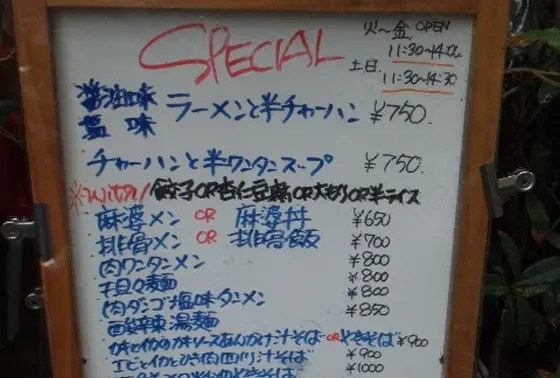 SPECIAL
火~金 OPEN
11:30~14:00
土日
11:30~14:30
醤油味
塩 味
ラーメンと半チャーハン ¥750.
チャーハンと半ワンタンスープ ¥750.
※with/ 餃子OR杏仁豆腐OR大盛りOR半ライス
麻婆メン OR 麻婆丼 ¥650
排骨メン OR 排骨飯 ¥700
肉ワンタンメン ¥800
担々麺 ¥800
肉ダンゴ塩味タンメン ¥850
酸辣湯麺
カキソースあんかけ汁そば OR やきそば ¥900
汁そば ¥900
¥1000